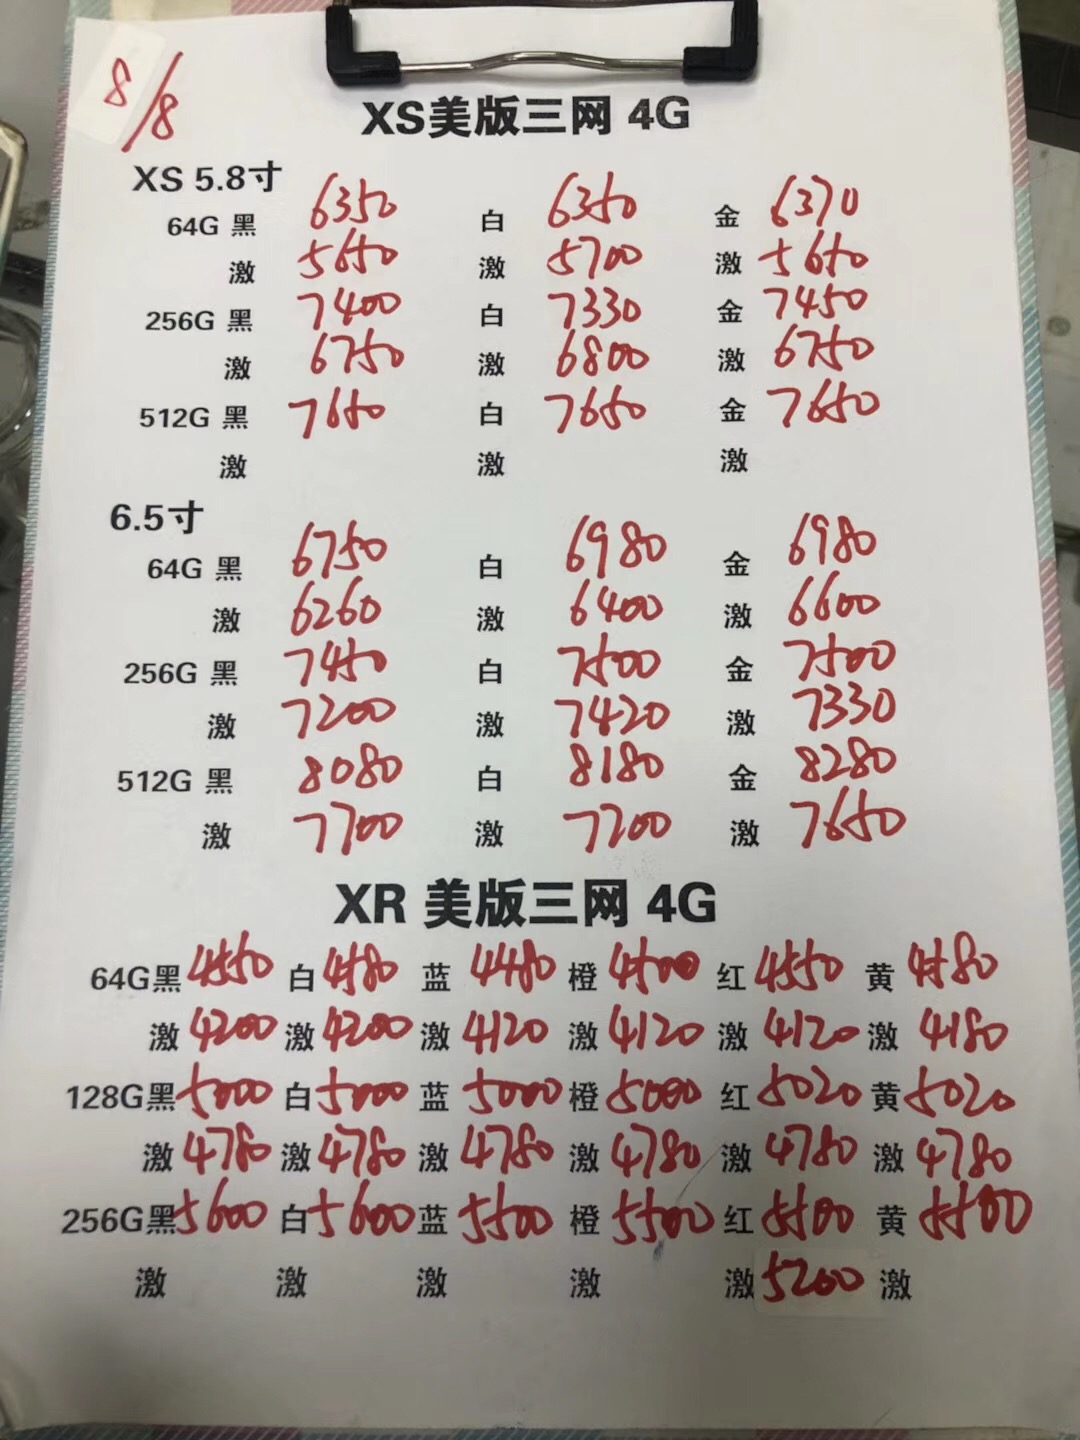 8/8
XS美版三网 4G
XS 5.8寸
64G 黑 6350 白 6350 金 6370
激 5650 激 5700 激 5650
256G 黑 7400 白 7330 金 7450
激 6750 激 6800 激 6750
512G 黑 7650 白 7650 金 7650
激 激 激
6.5寸
64G 黑 6750 白 6980 金 6980
激 6260 激 6400 激 6600
256G 黑 7450 白 7500 金 7500
激 7200 激 7420 激 7330
512G 黑 8080 白 8180 金 8280
激 7700 激 7200 激 7650
XR 美版三网 4G
64G黑 4550 白 4580 蓝 4480 橙 4500 红 4550 黄 4580
激 4200 激 4200 激 4120 激 4120 激 4120 激 4180
128G黑 5000 白 5000 蓝 5000 橙 5000 红 5020 黄 5020
激 4780 激 4780 激 4780 激 4780 激 4780 激 4780
256G黑 5600 白 5600 蓝 5500 橙 5500 红 5500 黄 5500
激 激 激 激 激 5200 激